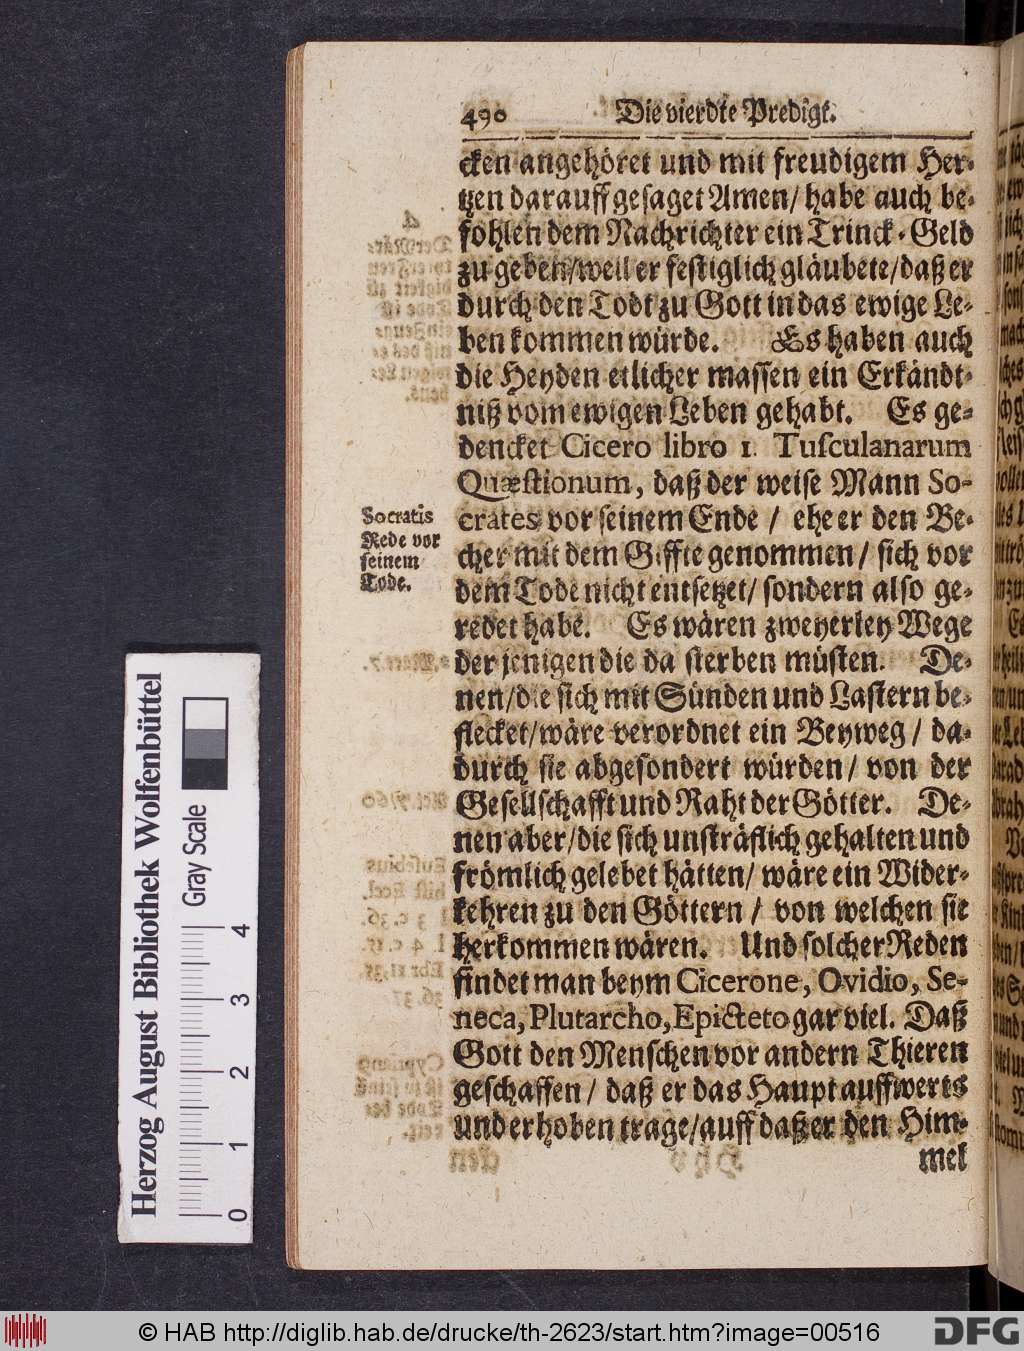 490 Die vierdte Predigt.
cken angehöret und mit freudigem Her-
tzen darauff gesaget Amen/ habe auch be-
fohlen dem Nachrichter ein Trinck-Geld
zu geben/weil er festiglich gläubete/daß er
durch den Todt zu Gott in das ewige Le-
ben kommen würde. Es haben auch
die Heyden etlicher massen ein Erkändt-
niß vom ewigen Leben gehabt. Es ge-
dencket Cicero libro 1. Tusculanarum
Quæstionum, daß der weise Mann So-
crates vor seinem Ende / ehe er den Be-
cher mit dem Giffte genommen/ sich vor
dem Tode nicht entsetzet/ sondern also ge-
redet habe. Es wären zweyerley Wege
der jenigen die da sterben müsten. De-
nen/die sich mit Sünden und Lastern be-
flecket/wäre verordnet ein Beyweg / da-
durch sie abgesondert würden/ von der
Gesellschafft und Raht der Götter. De-
nen aber/die sich unsträflich gehalten und
frömlich gelebet hätten/ wäre ein Wider-
kehren zu den Göttern / von welchen sie
herkommen wären. Und solcher Reden
findet man beym Cicerone, Ovidio, Se-
neca, Plutarcho, Epicteto gar viel. Daß
Gott den Menschen vor andern Thieren
geschaffen / daß er das Haupt auffwerts
und erhoben trage/auff daß er den Him-
mel
Socratis
Rede vor
seinem
Tode.
Herzog August Bibliothek Wolfenbüttel
Gray Scale
0 1 2 3 4
© HAB http://diglib.hab.de/drucke/th-2623/start.htm?image=00516
DFG